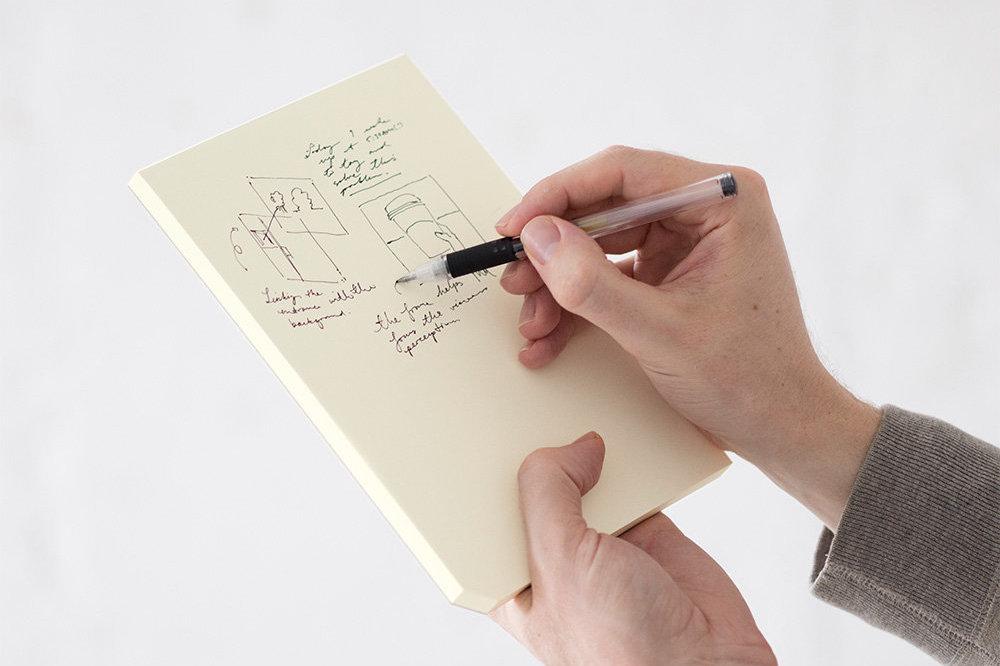 Today I woke
up at 5:30AM
to try and
solve this
problem.
Linking the
with the
background.
the frame helps
focus the viewers
perception